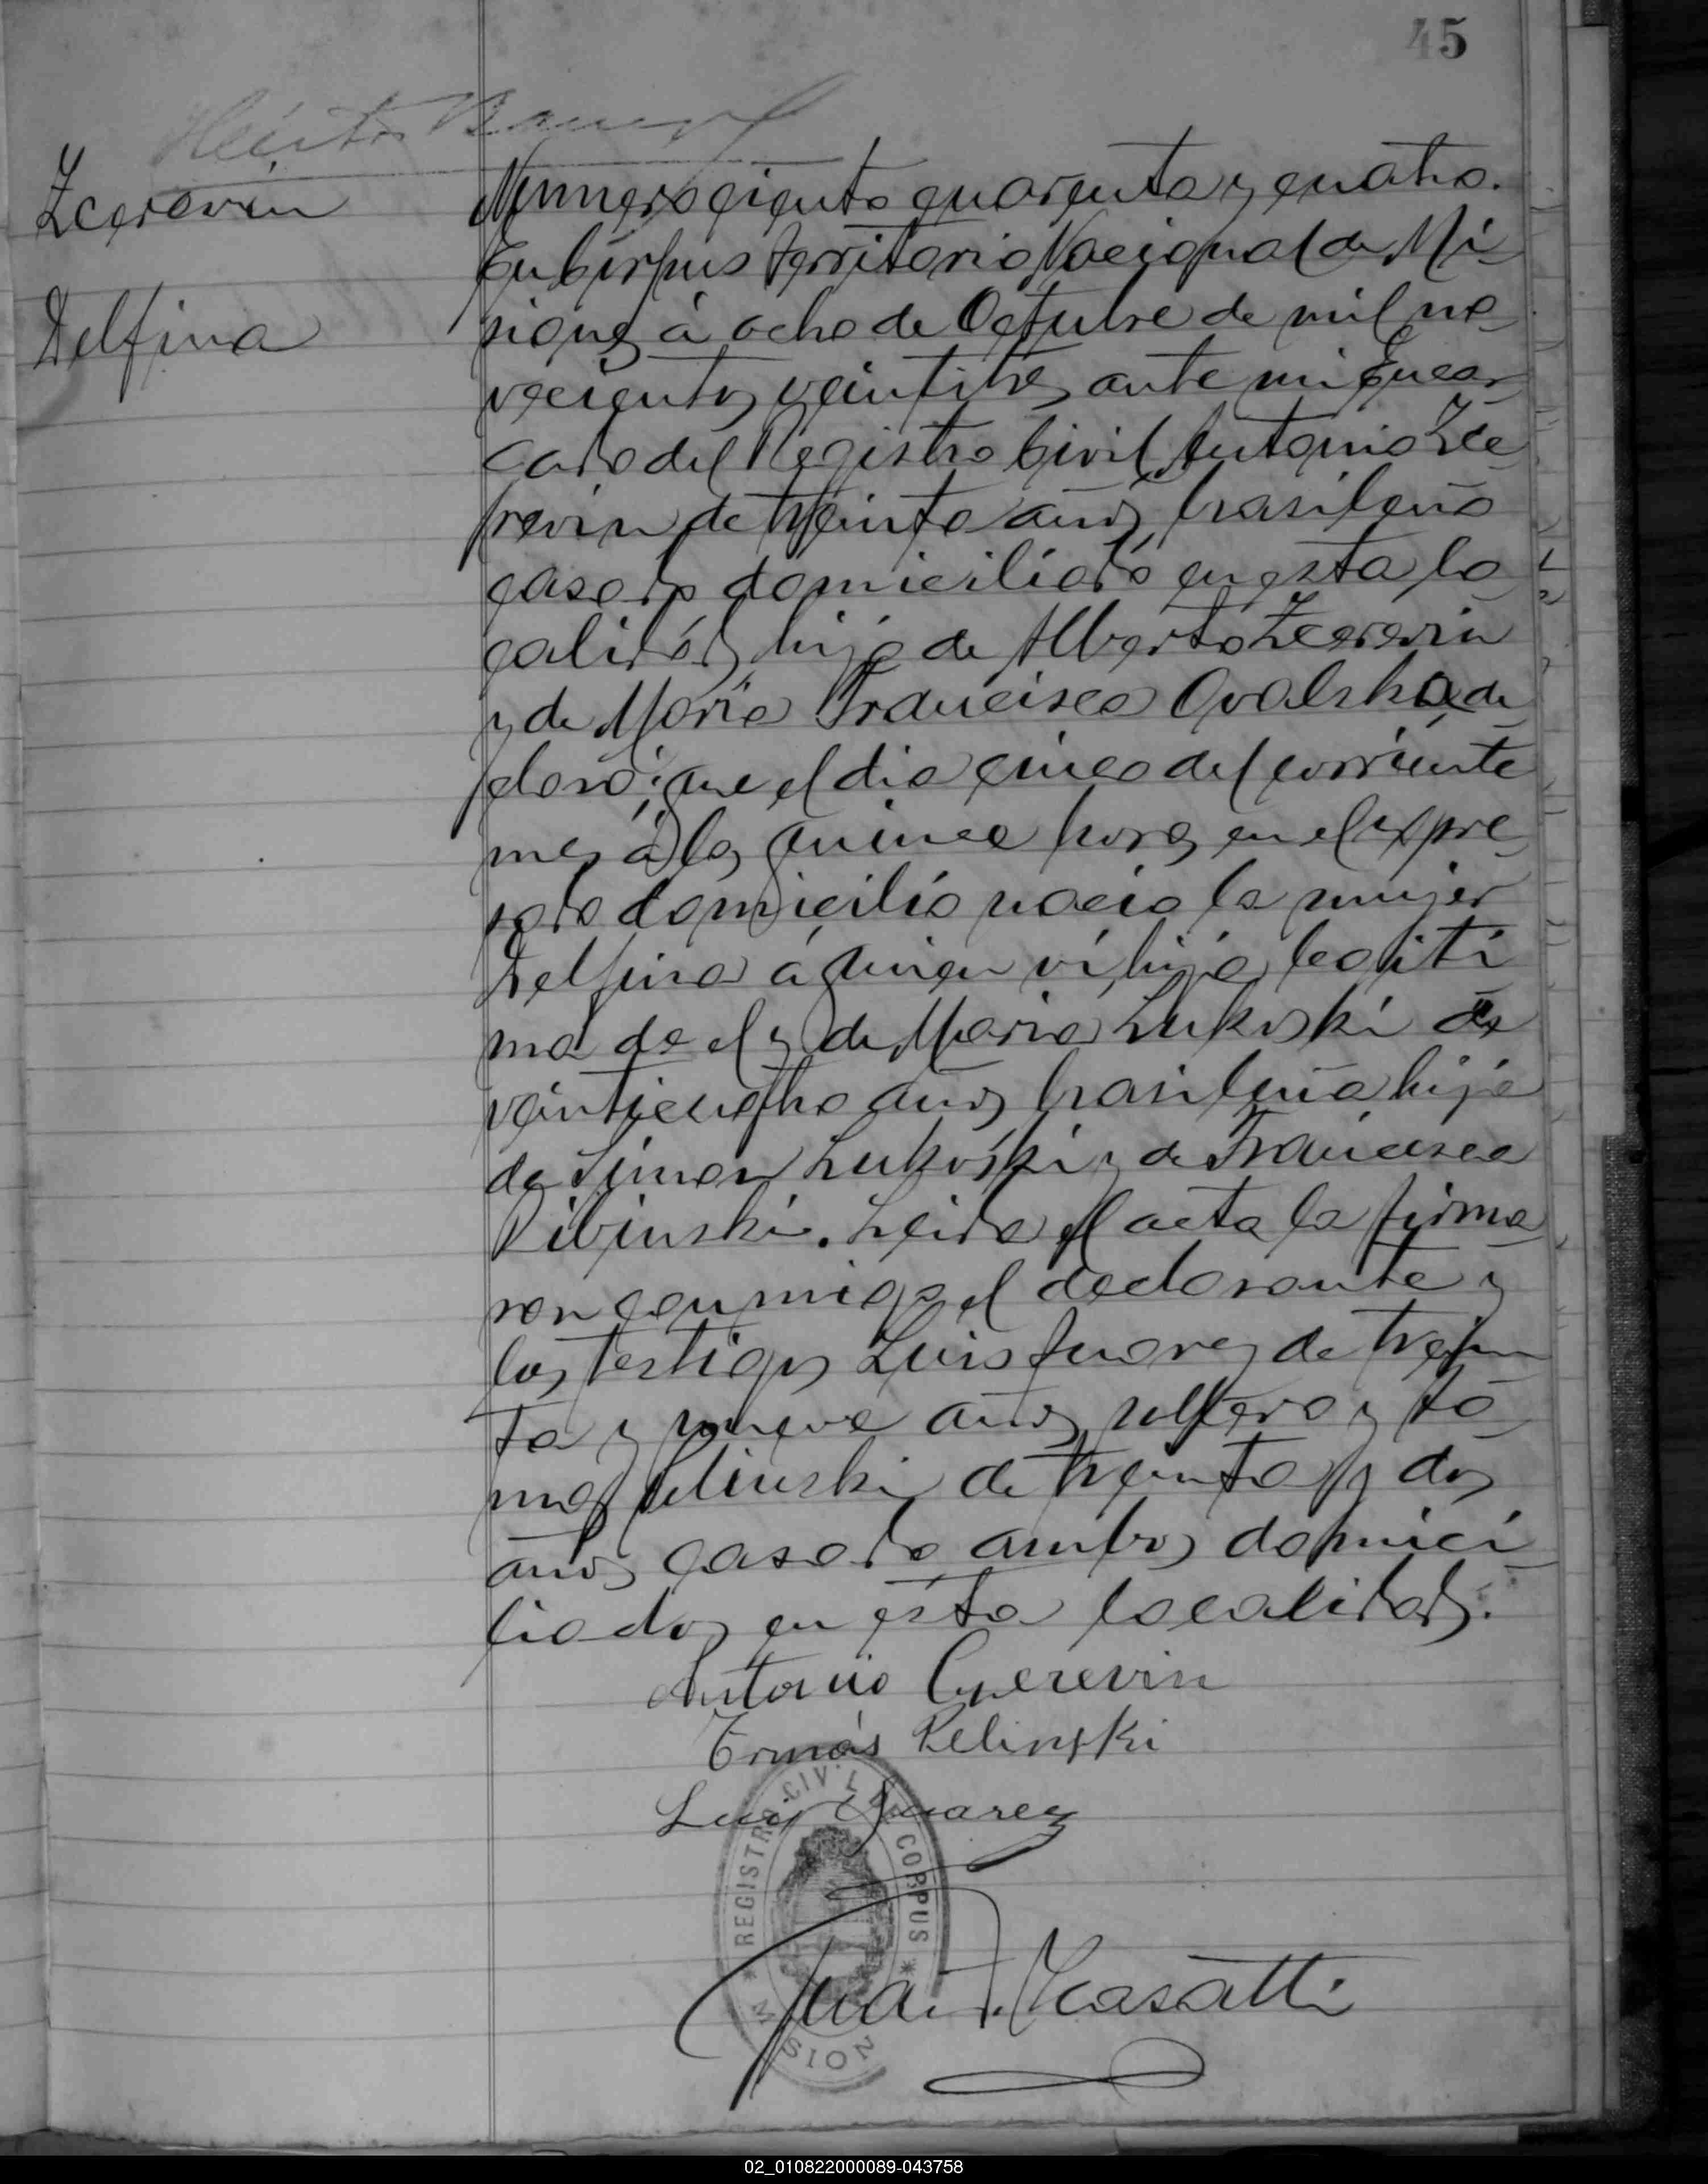 45
Zcerevin
Delfina
Numero ciento cuarenta y cuatro.
En Corpus territorio Nacional de Mi-
siones á ocho de Octubre de mil no-
vecientos veintitres ante mi Encar-
gado del Registro Civil, Antonio Zce-
revin de treinta años, brasileño
casado domiciliado en esta lo-
calidad, hijo de Alberto Zcerevin
y de Maria Francisca Ovalska, de-
claró: que el dia cinco del corriente
mes á las quince horas en el expre-
sado domicilio nació la mujer
Delfina á quien ví, hija legiti-
ma de el y de Maria Lukoski de
veinticuatro años, brasileña hija
de Simon Lukoski y de Francisca
Ribinski. Leida el acta la firma-
ron conmigo el declarante y
los testigos Luis Juarez de trein-
ta y nueve años, soltero y To-
mas Pelinski de treinta y dos
años casado ambos domici-
liados en esta localidad.
Antonio Czerevin
Tomás Pelinski
Luis Juarez
REGISTRO CIVIL DE CORPUS * MISION
Juan
02_010822000089-043758